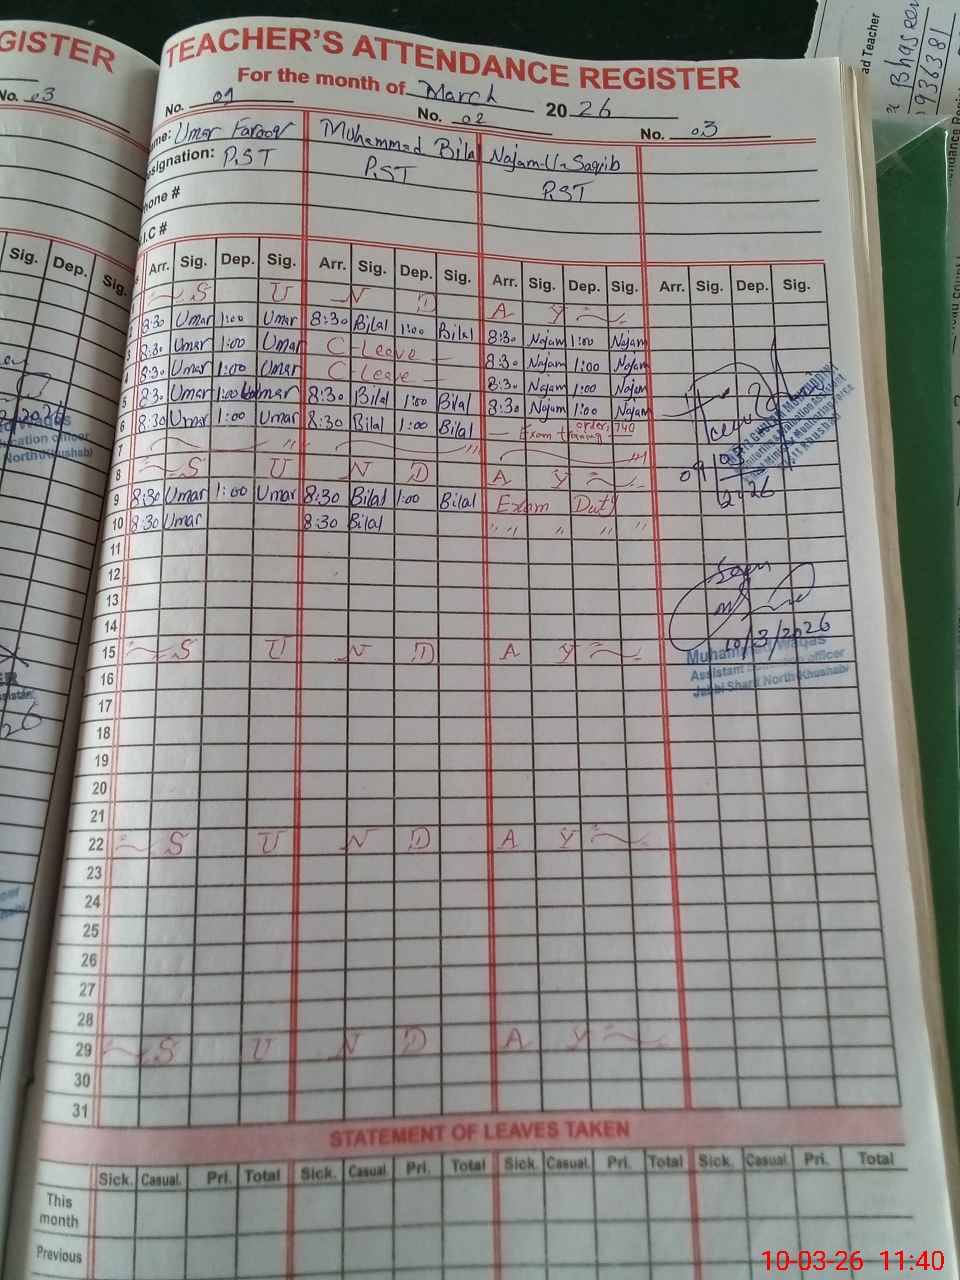 GISTER
No. 03
Sig. Dep. Sig.
TEACHER'S ATTENDANCE REGISTER
For the month of March 2026
No. 02
No. 03
me: Umar Farooq Muhammad Bilal Najam-U-Saqib
signation: P.ST P.ST P.ST
hone #
I.C #
Arr. Sig. Dep. Sig. Arr. Sig. Dep. Sig. Arr. Sig. Dep. Sig. Arr. Sig. Dep. Sig.
S U N D A Y
8:30 Umar 1:00 Umar 8:30 Bilal 1:00 Bilal 8:30 Najam 1:00 Najam
3 8:30 Umar 1:00 Umar C-Leave 8:30 Najam 1:00 Najam
4 8:30 Umar 1:00 Umar C-Leave 8:30 Najam 1:00 Najam
5 8:30 Umar 1:00 Umar 8:30 Bilal 1:00 Bilal 8:30 Najam 1:00 Najam
6 8:30 Umar 1:00 Umar 8:30 Bilal 1:00 Bilal Exam
7
8 S U N D A Y
9 8:30 Umar 1:00 Umar 8:30 Bilal 1:00 Bilal Exam Duty
10 8:30 Umar 8:30 Bilal " " " " "
11
12
13
14
15 S U N D A Y
10/3/2026
Muhammad Waqas
Assistant Education officer
Jabbi Sharif North (Khushab)
16
17
18
19
20
21
22 S U N D A Y
23
24
25
26
27
28
29 S U N D A Y
30
31
STATEMENT OF LEAVES TAKEN
Sick. Casual. Pri. Total Sick. Casual. Pri. Total Sick. Casual. Pri. Total Sick. Casual. Pri. Total
This month
Previous
ad Teacher
10-03-26 11:40